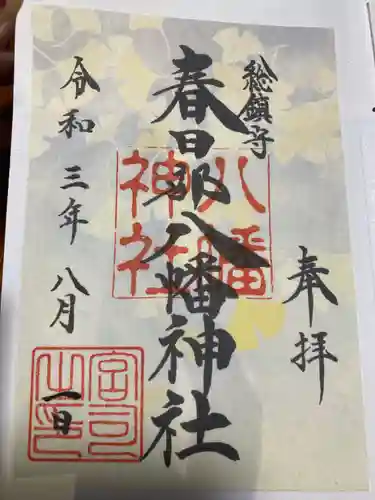 奉拝
総鎮守
春日部八幡神社
八幡
神社
令和三年八月
一日
宮司
之印